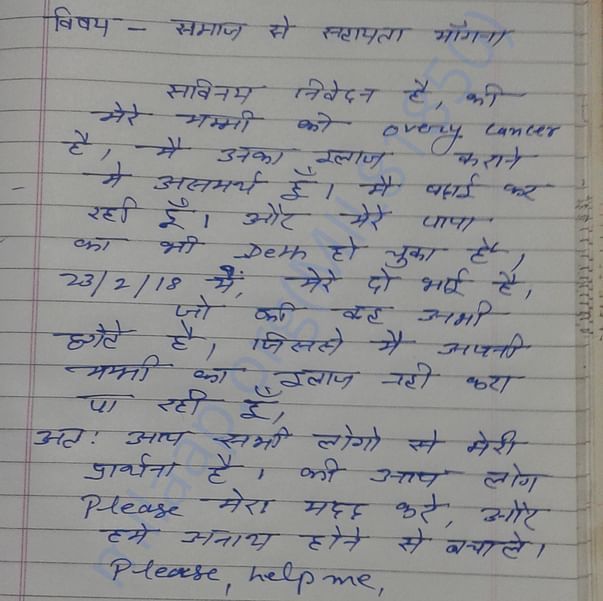 विषय - समाज से सहायता माँगना
सविनय निवेदन है, की
मेरे मम्मी को overy cancer
है, मै उनका इलाज कराने
मे असमर्थ हूँ। मै पढाई कर
रही हूँ। और मेरे पापा
का भी Deth हो चुका है,
23/2/18 में, मेरे दो भाई है,
जो की वह अभी
छोटे है, जिससे मै अपनी
मम्मी का इलाज नही करा
पा रही हूँ,
अत: आप सभी लोगो से मेरी
प्रार्थना है, की आप लोग
Please मेरा मदद करे, और
हमे अनाथ होने से बचाले।
Please, help me,